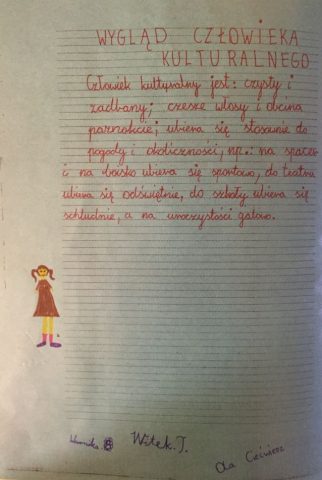 WYGLĄD CZŁOWIEKA
KULTURALNEGO
Człowiek kulturalny jest: czysty i
zadbany; czesze włosy i obcina
paznokcie; ubiera się stosownie do
pogody i okoliczności, np.: na spacer
i na boisko ubiera się sportowo, do teatru
ubiera się odświętnie, do szkoły ubiera się
schludnie, a na uroczystości galowo.
Witek. J.
Ola